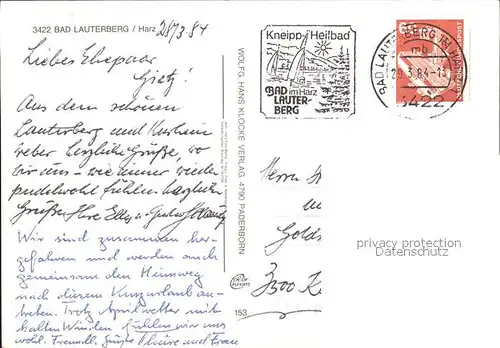 3422 BAD LAUTERBERG / Harz 28/3 84
Liebes Ehepaar
Gietz!
Aus dem schönen
Lauterberg und Kurheim
herzliche Grüße, wo
wir uns - wie immer wieder
pudelwohl fühlen herzliche
Grüße Ihre Elly u. Gustav
Wir sind zusammen her-
gefahren und werden auch
gemeinsam den Heimweg
nach diesem Kurzurlaub an-
treten. Trotz Aprilwetter mit
kalten Winden fühlen wir uns
wohl. Freundl. Grüße und Frau
WOLFG. HANS KLOCKE VERLAG 4790 PADERBORN
color chrom
153
Kneipp-Heilbad
BAD im Harz
LAUTER-
BERG
BAD LAUTERBERG IM HARZ
mb
29.3.84-15
3422
Herrn
Golds
3500 K
privacy protection